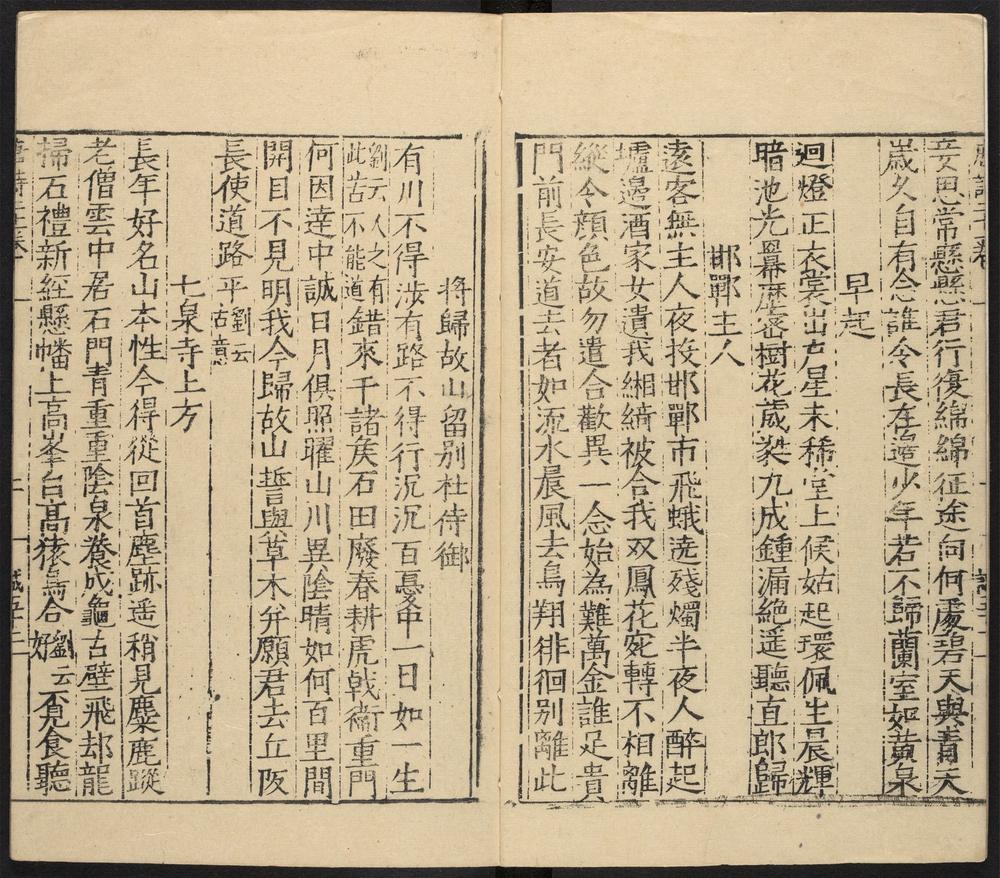 妾思常懸懸君行復綿綿征途向何處碧天與青天
歲久自有念誰令長在邊少年若不歸蘭室如黃泉
早起
迴燈正衣裳出戶星未稀堂上候姑起環佩生晨輝
暗池光羃䍥密樹花葳蕤九成鍾漏絕遥聽直郎歸
邯鄲主人
遠客無主人夜投邯鄲市飛蛾遶殘燭半夜人醉起
壚邊酒家女遺我緗綺被合我双鳳花宛轉不相離
縱令顔色故勿遣合歡異一念始為難萬金誰足貴
門前長安道去者如流水晨風去鳥翔徘徊别離此
将歸故山留别杜侍御
有川不得涉有路不得行沉沉百憂中一日如一生
劉云人之有此苦不能道錯來干諸侯石田廢春耕虎戟衛重門
何因達中誠日月俱照曜山川異陰晴如何百里間
開目不見明我今歸故山誓與草木并願君去丘阪
長使道路平劉云古意
七泉寺上方
長年好名山本性今得從回首塵跡遥稍見麋鹿蹤
老僧雲中居石門青重重陰泉養成龜古壁飛却龍
掃石禮新經懸幡上高峯台高猿鳥合劉云好覓食聽